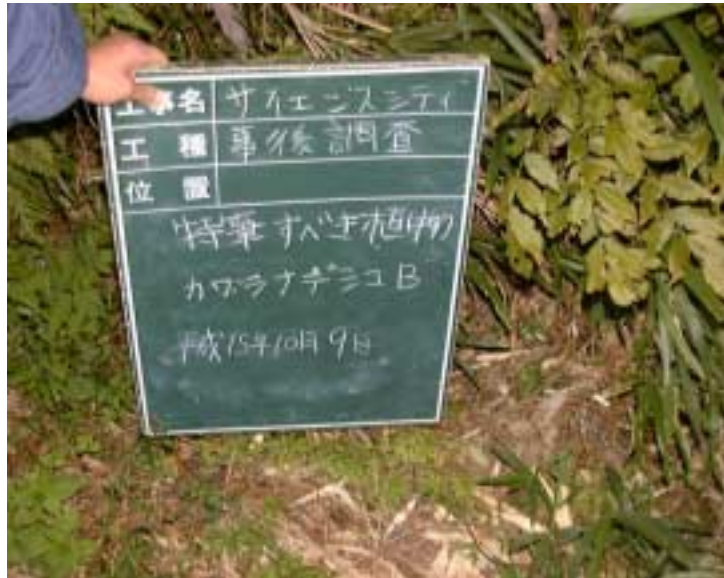 工事名 サイエンスシティ
工種 事後調査
位置
特筆すべき植物
カワラナデシコB
平成15年10月9日